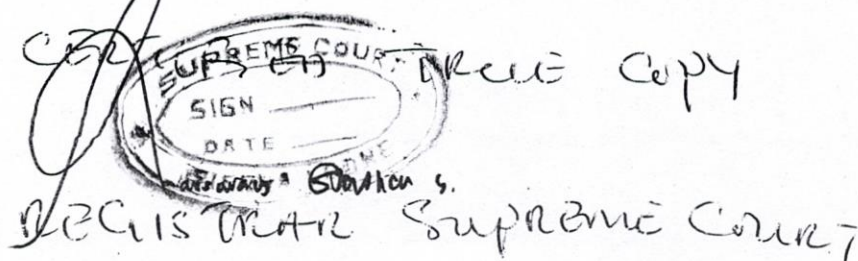 CERTIFIED TRUE COPY
SUPREME COURT
SIGN
DATE
REGISTRAR SUPREME COURT